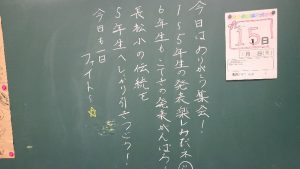 今日はありがとう集会!
1~5年生の発表楽しみだネ
6年生もこころの発表がんばろう
長松小の伝統を
5年生へしっかり引きつごう!
今日も1日
ファイト~☆
15日